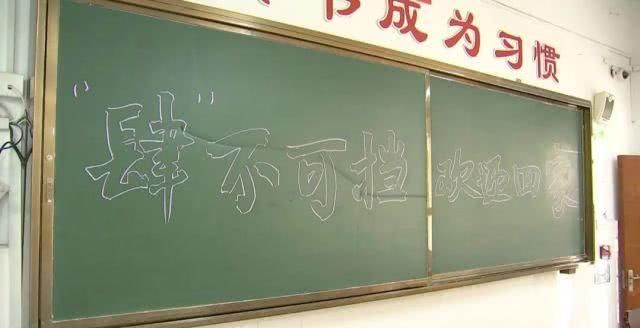 书成为习惯
"肆"不可挡 欢迎回家